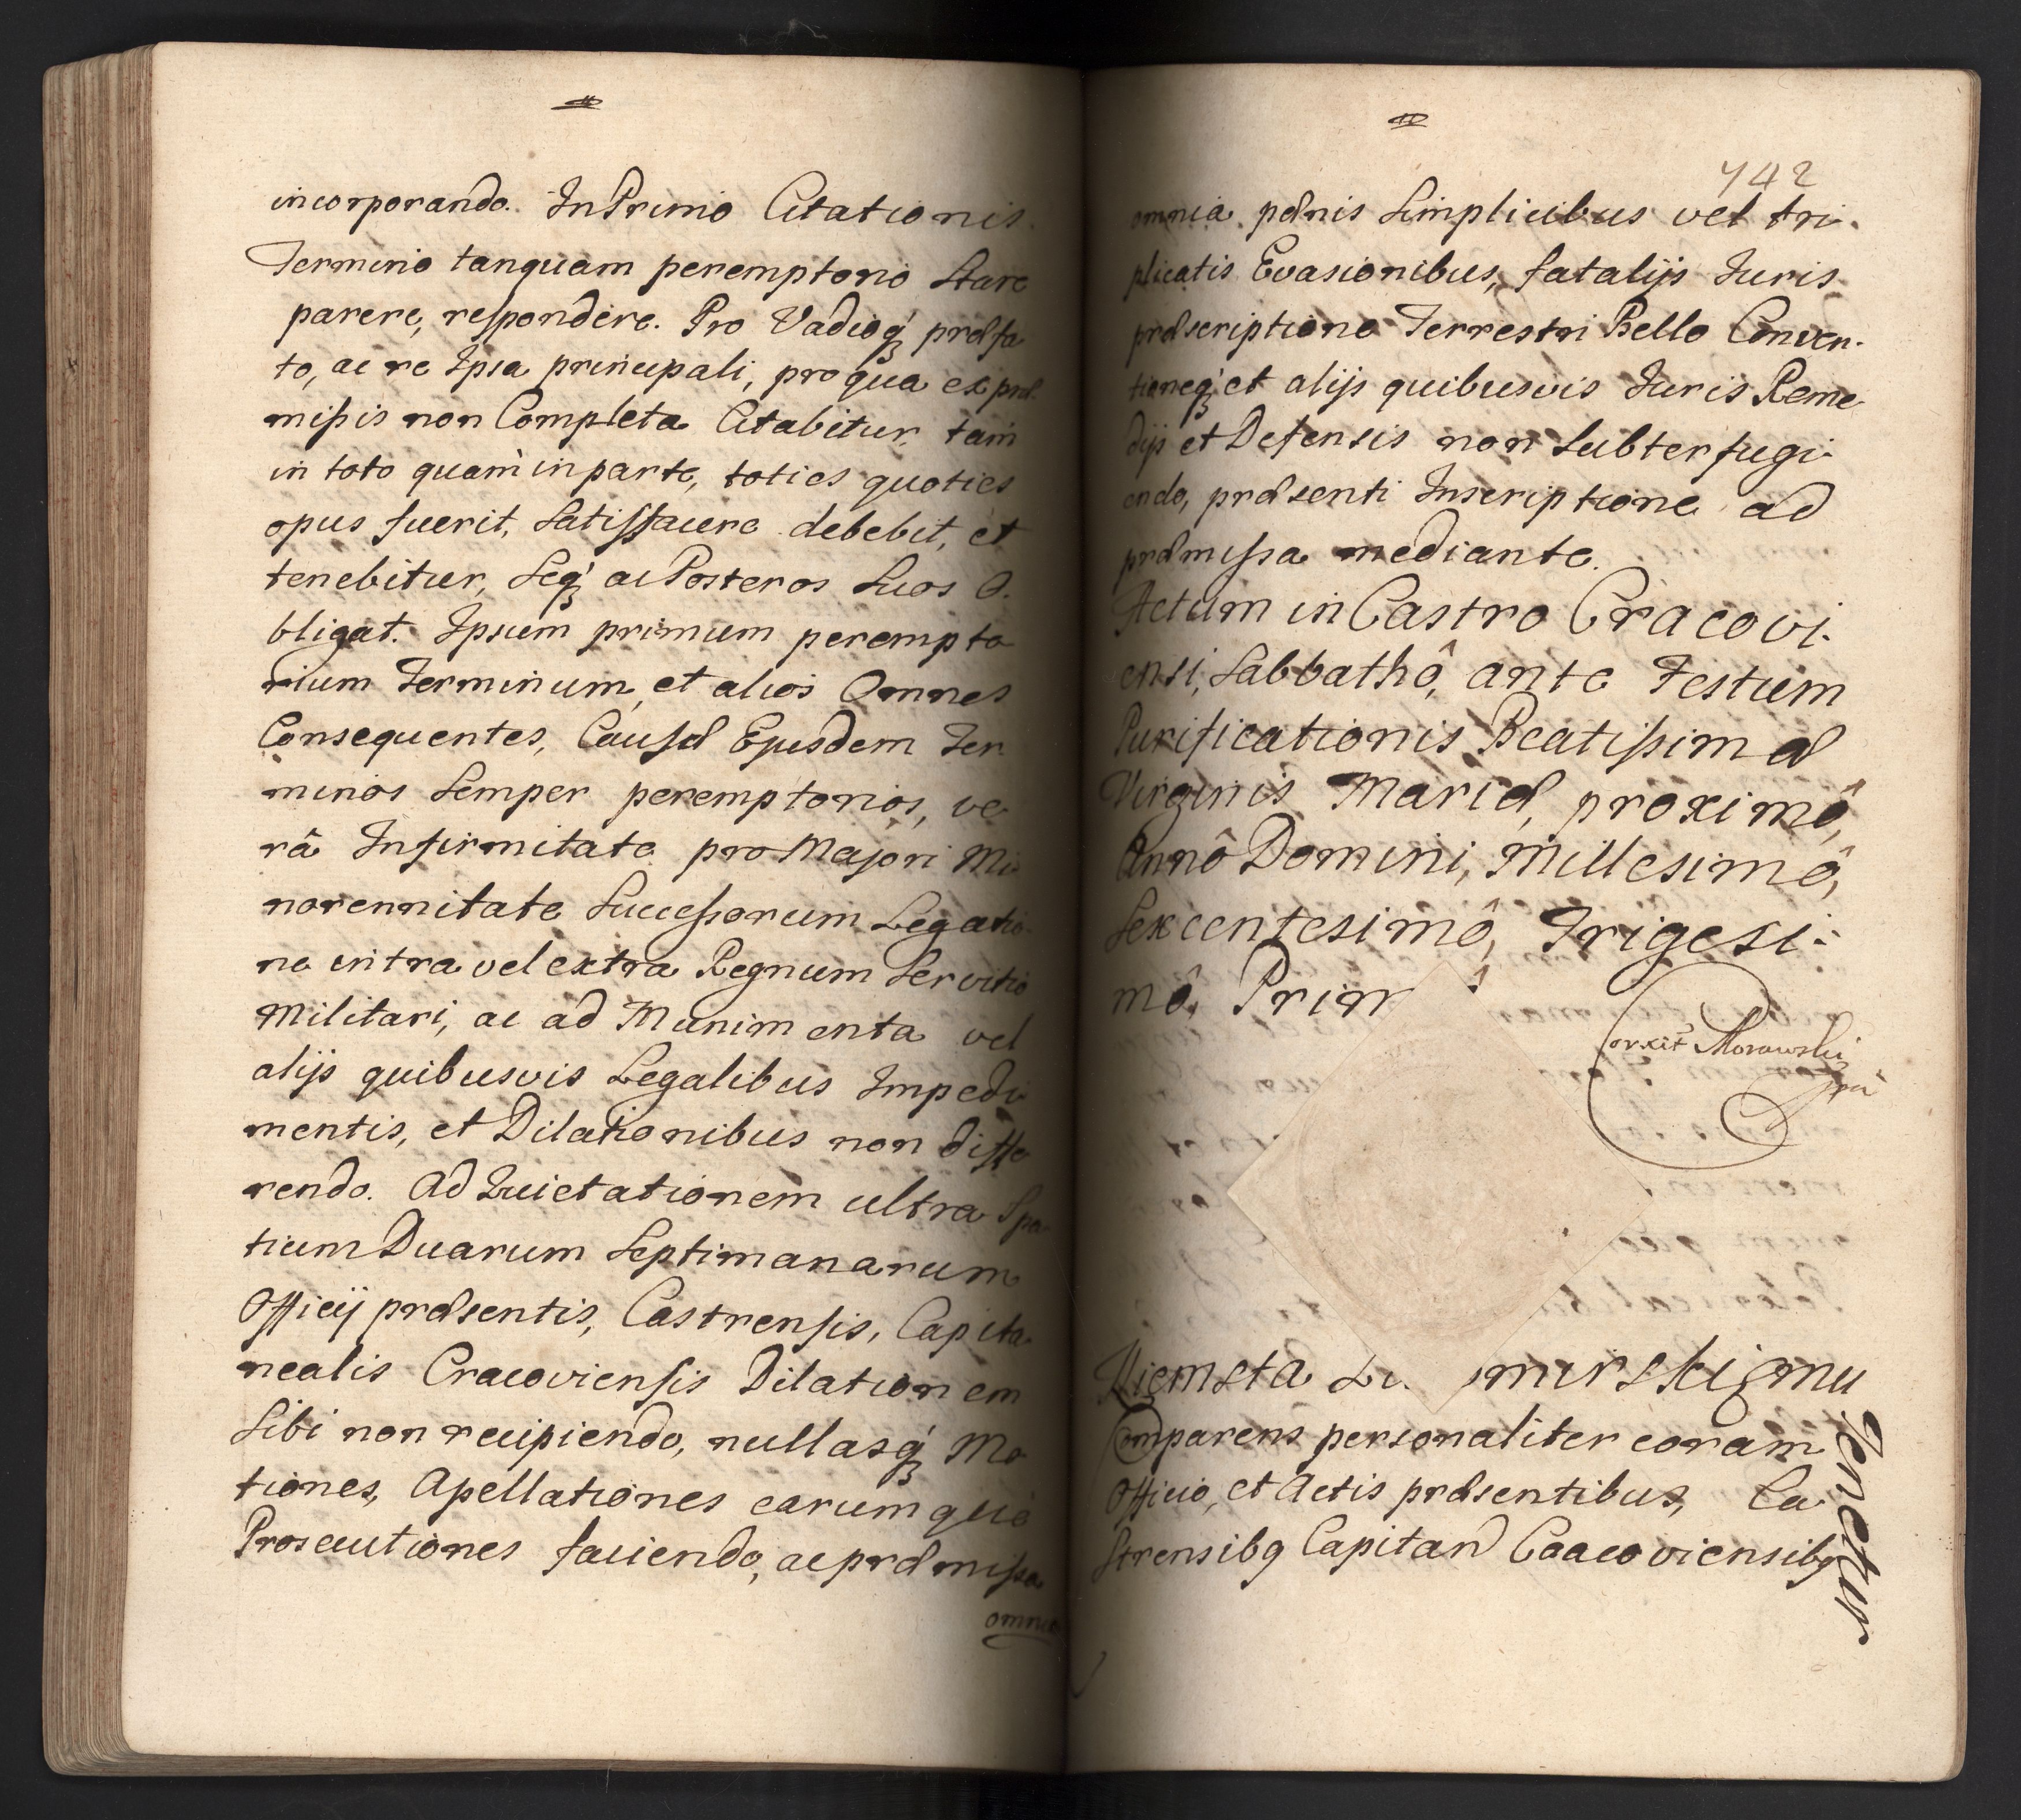 incorporando. In Primo Citationis
Termino tanquam peremptorio stare
parere, respondere. Pro Vadioq́ꝫ præfa
to, ac re Ipsa principali, pro qua ex præ
missis non Completa Citabitur, tam
in toto quam in parte, toties quoties
opus fuerit, satisfacere debebit, et
tenebitur, seq́ꝫ ac Posteros suos O.
bligat. Ipsum primum perempto
rium Terminum, et alios Omnes
Consequentes, Causæ Ejusdem Ter
minos semper peremptorios, ve
râ Infirmitate pro Majori Mi
norennitate Successorum Legatio
ne intra vel extra Regnum servitio
Militari, ac ad Munimenta vel
alijs quibusvis Legalibus Impedi
mentis, et Dilationibus non diffe
rendo. Ad Quietationem ultra Spa
tium Duarum Septimanarum
Officij præsentis, Castrensis, Capita
nealis Cracoviensis Dilationem
sibi non recipiendo, nullasq́ꝫ Mo
tiones, Apellationes earumque
Prosecutiones faciendo, ac præmissa
omnia
742
omnia pænis simplicibus vel tri.
plicatis Evasionibus, fatalijs Juris
præscriptione Terrestri Bello Conven.
tioneq́ꝫ et alijs quibusvis Juris Reme
dijs et Defensis non subterfugi.
endo, præsenti Inscriptione ad
præmissa mediante.
Actum in Castro Cracovi.
ensi, Sabbathô, ante Festum
Purificationis Beatissimæ
Virginis Mariæ, proximô,
Annô Domini, Millesimô,
Sexcentesimô, Trigesi:
mô, Prim
Corrxit Morawski
Kiemsta mirski gmu
Comparens personaliter coram
Officio, et Actis præsentibus, Ca
strensibq Capitan Caacoviensibq
Tenetur